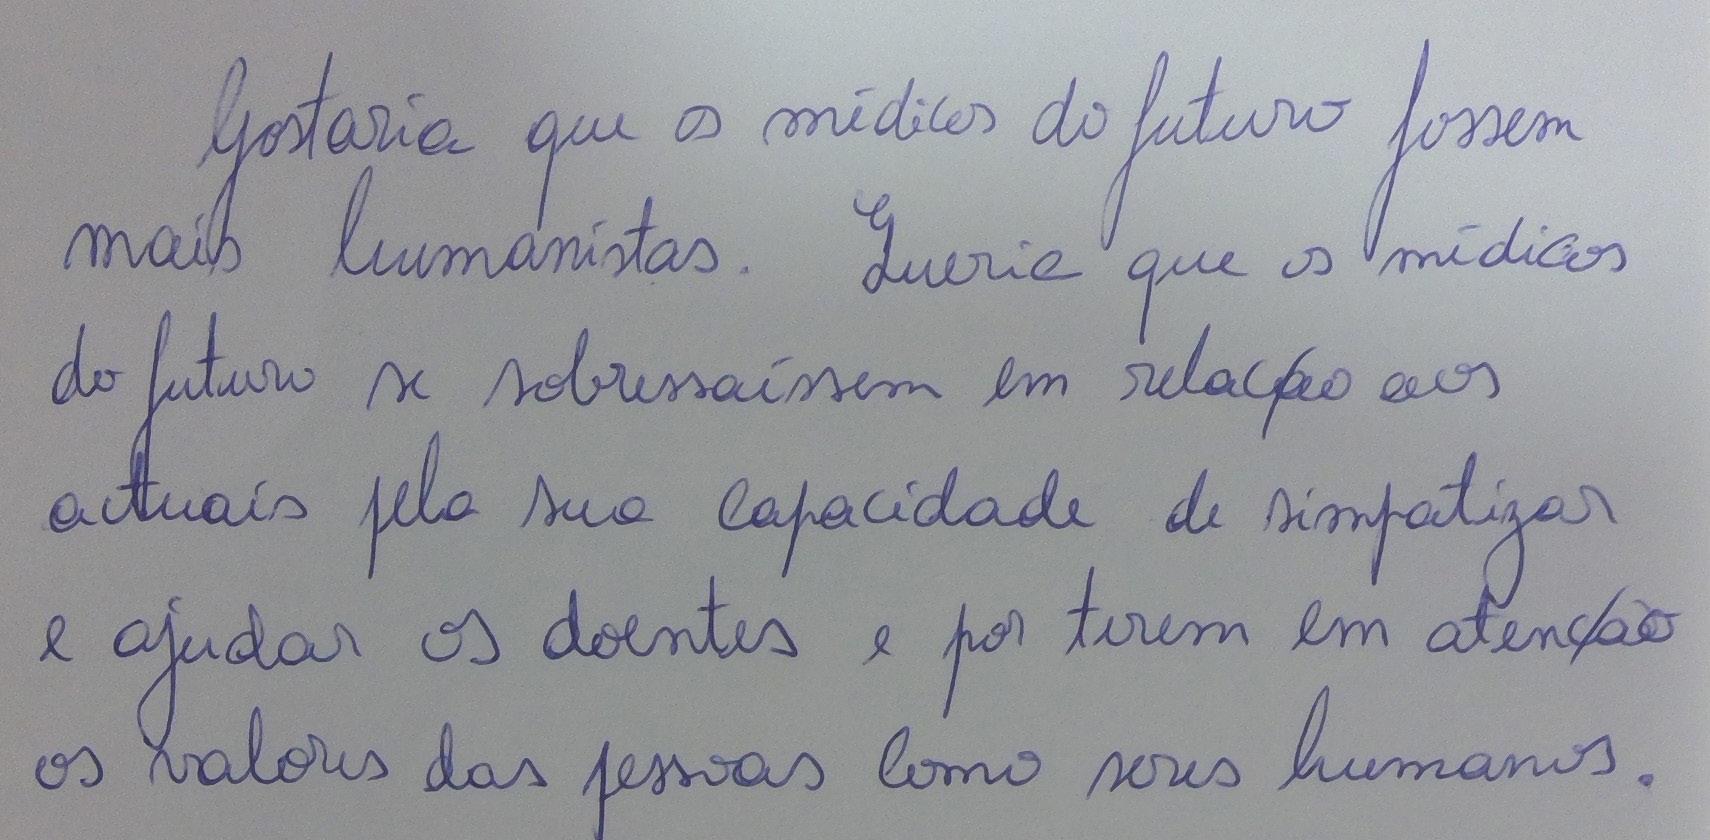 Gostaria que os médicos do futuro fossem
mais humanistas. Queria que os médicos
do futuro se sobressaíssem em relação aos
actuais pela sua capacidade de simpatizar
e ajudar os doentes e por terem em atenção
os valores das pessoas como seres humanos.